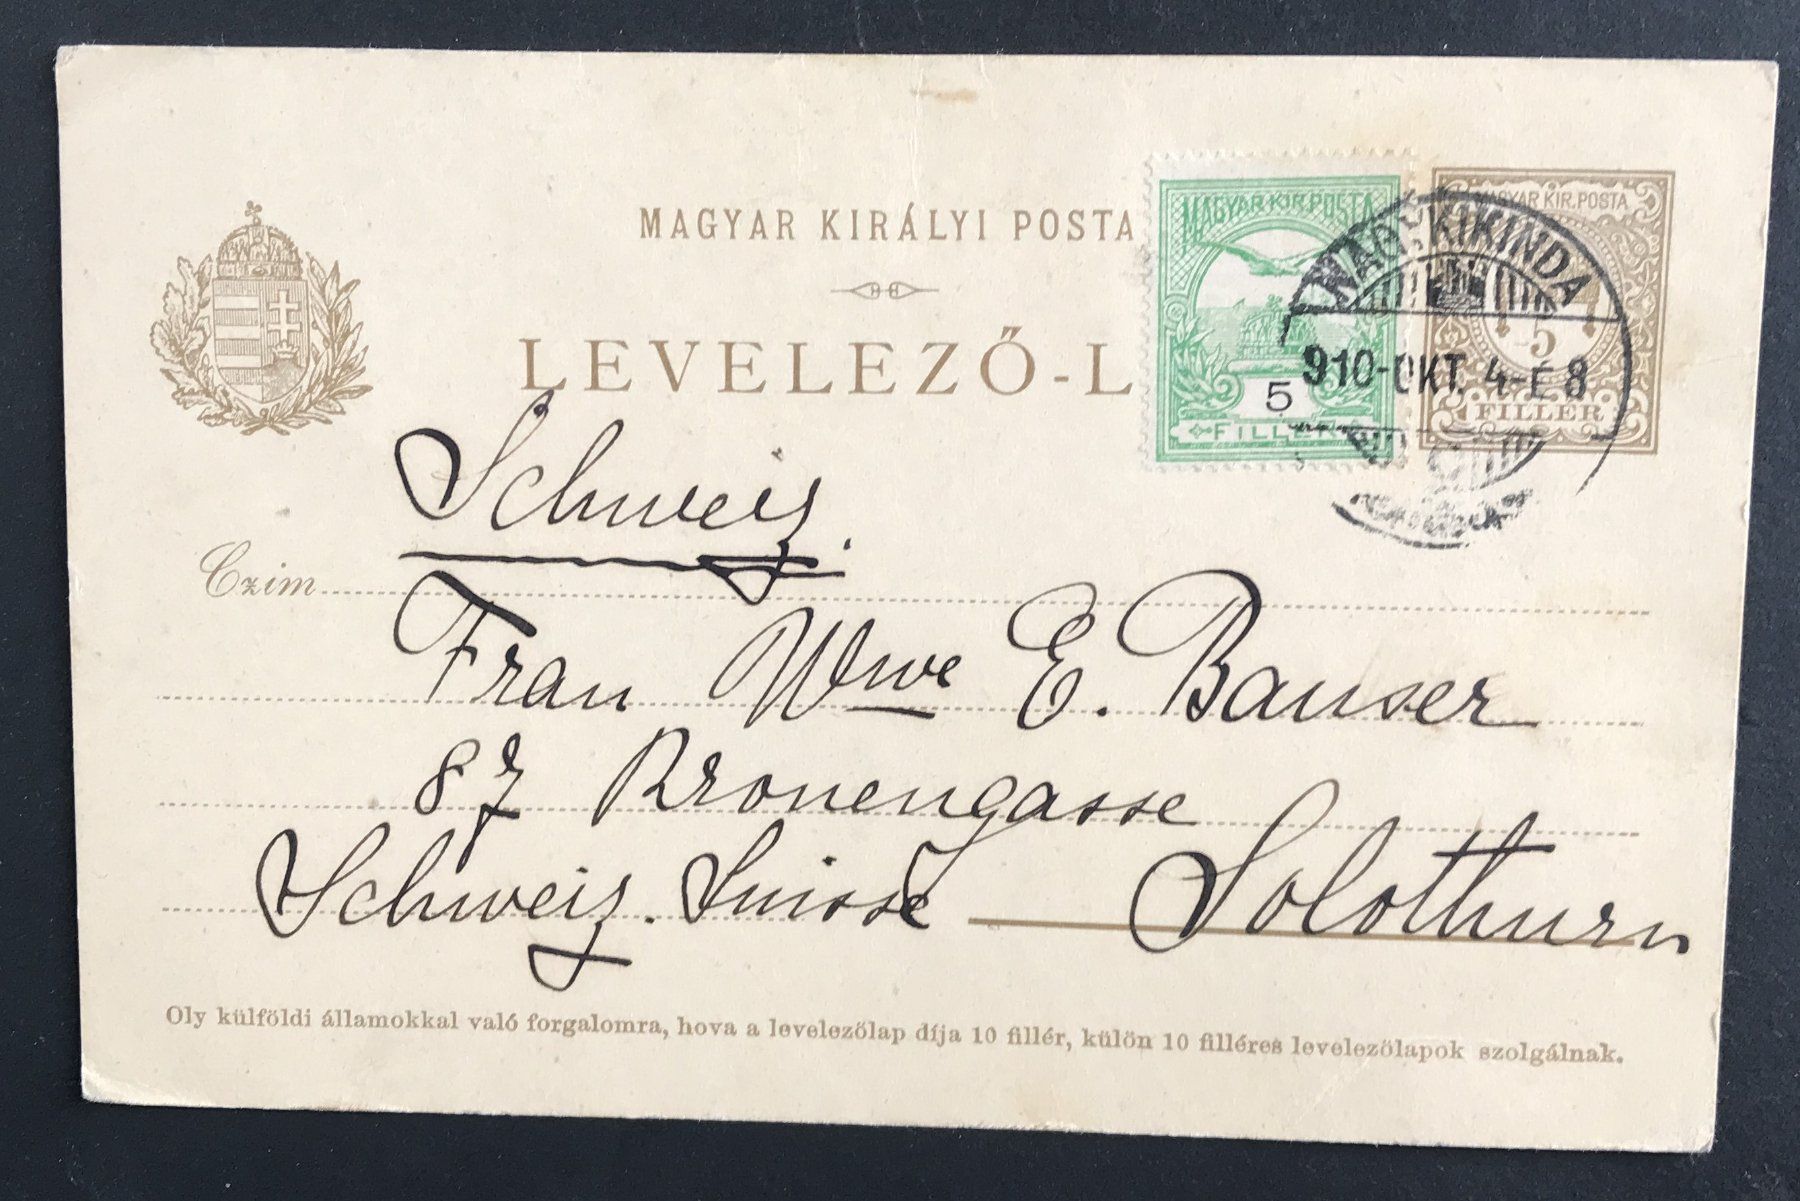 MAGYAR KIRÁLYI POSTA
LEVELEZŐ-L
MAGYAR KIR. POSTA
5
FILLÉR
MAGYAR KIR. POSTA
5
FILLÉR
NAGYKIKINDA
910-OKT. 4-É8
Schweiz.
Czim
Frau Wwe E. Bauser
87 Kronengasse
Schweiz. Suisse Solothurn
Oly külföldi államokkal való forgalomra, hova a levelezőlap díja 10 fillér, külön 10 filléres levelezőlapok szolgálnak.